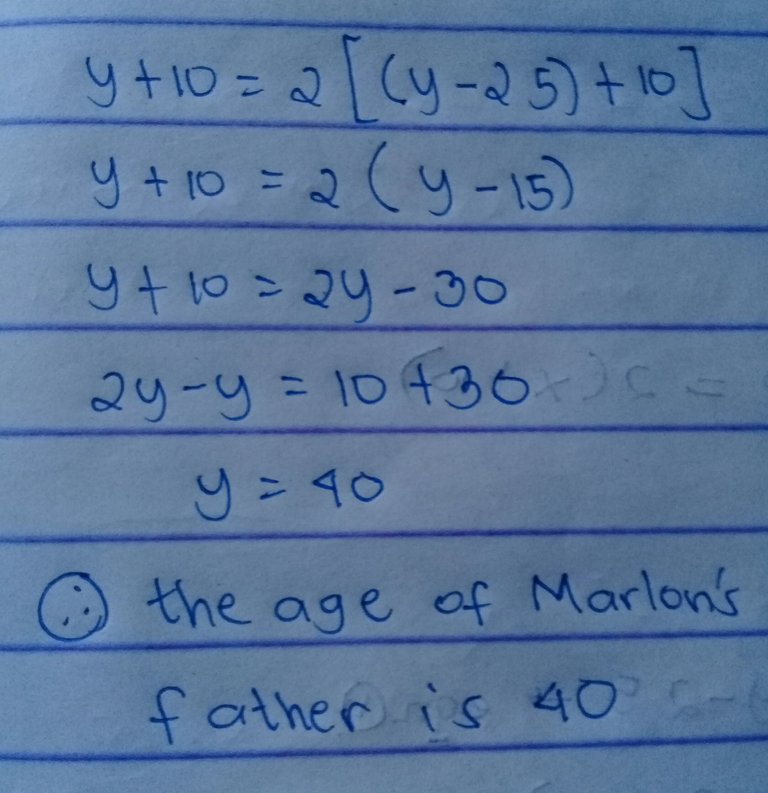 y + 10 = 2 [(y - 25) + 10]
y + 10 = 2 (y - 15)
y + 10 = 2y - 30
2y - y = 10 + 30
y = 40
∴ the age of Marlon's
father is 40